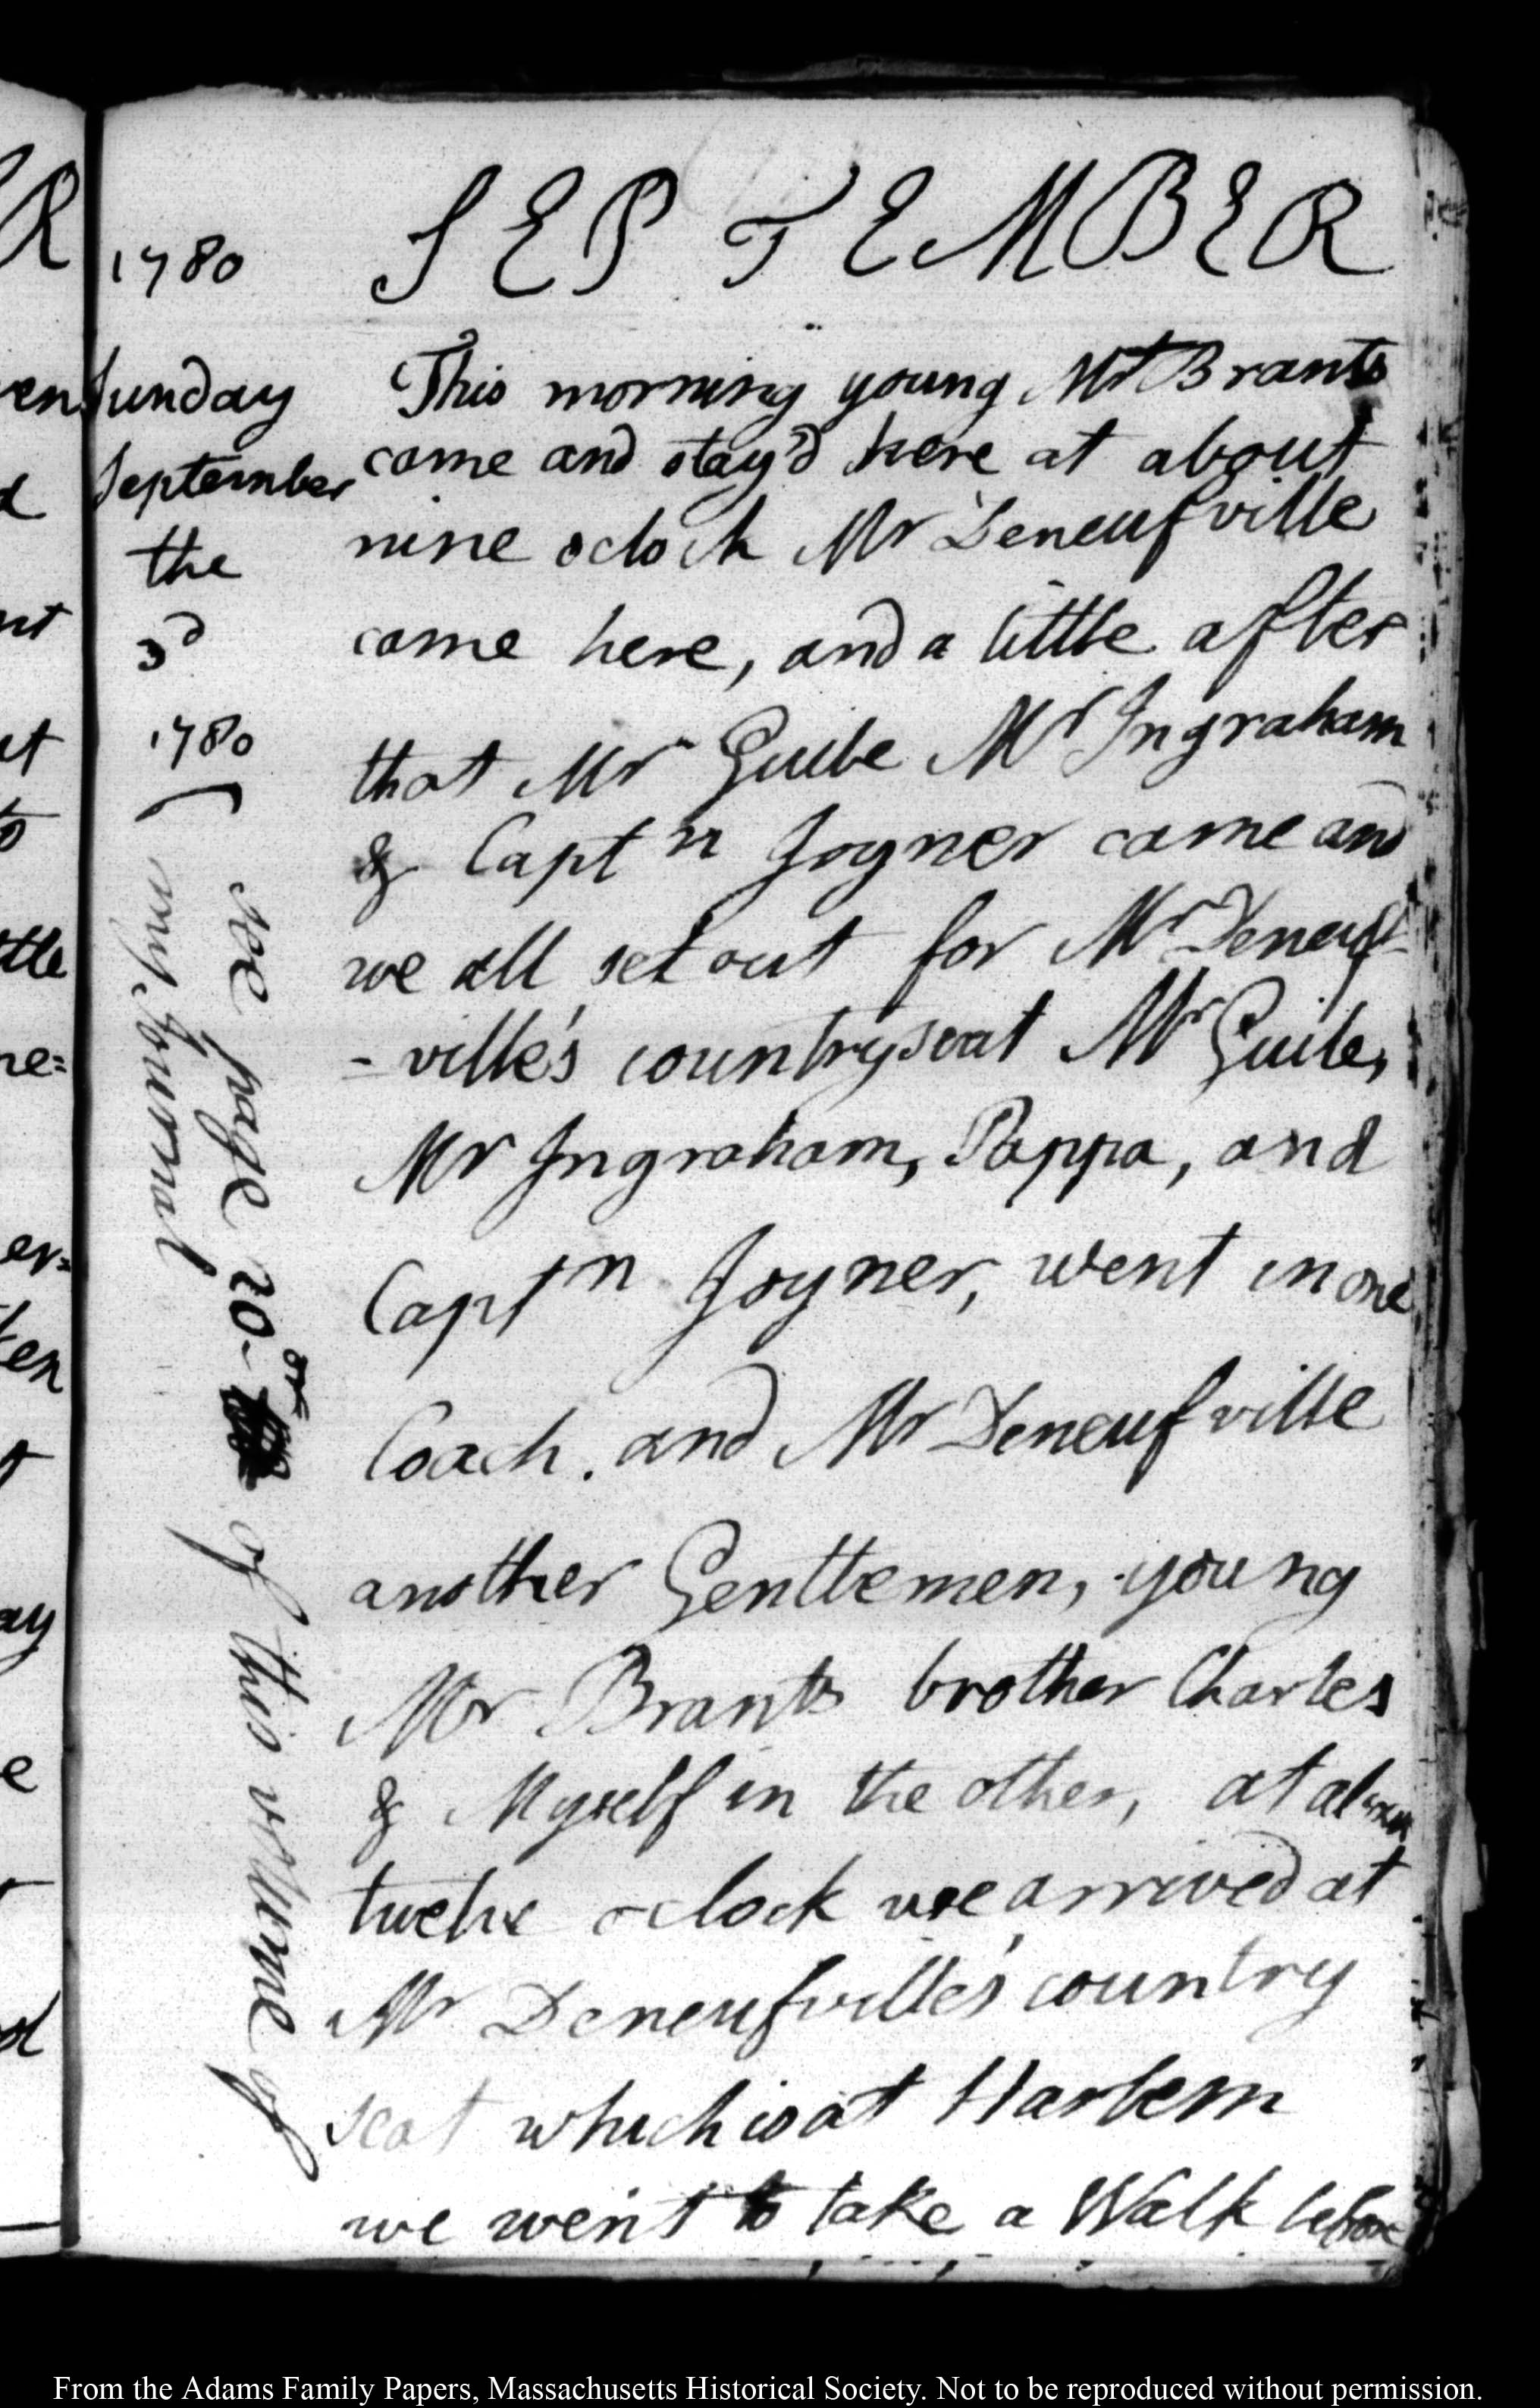 1780 SEPTEMBER
Sunday
September
the
3d
1780
This morning young Mr Brants
came and stay'd here at about
nine oclock Mr Deneufville
came here, and a little after
that Mr Guile Mr Ingraham
& Captn Joyner came and
we all set out for Mr Deneuf-
-ville's countryseat Mr Guile,
Mr Ingraham, Pappa, and
Captn Joyner, went in one
Coach. and Mr Deneufville
another Genttemen, young
Mr Brants brother Charles
& Myself in the other, at about
twelve oclock we arrived at
Mr Deneufville's country
seat which is at Harlem
we went to take a Walk before
see page 20 of this volume of
my Journal
en
d
nt
ut
to
ttle
ne=
er=
ten
t
ay
e
d
R
From the Adams Family Papers, Massachusetts Historical Society. Not to be reproduced without permission.